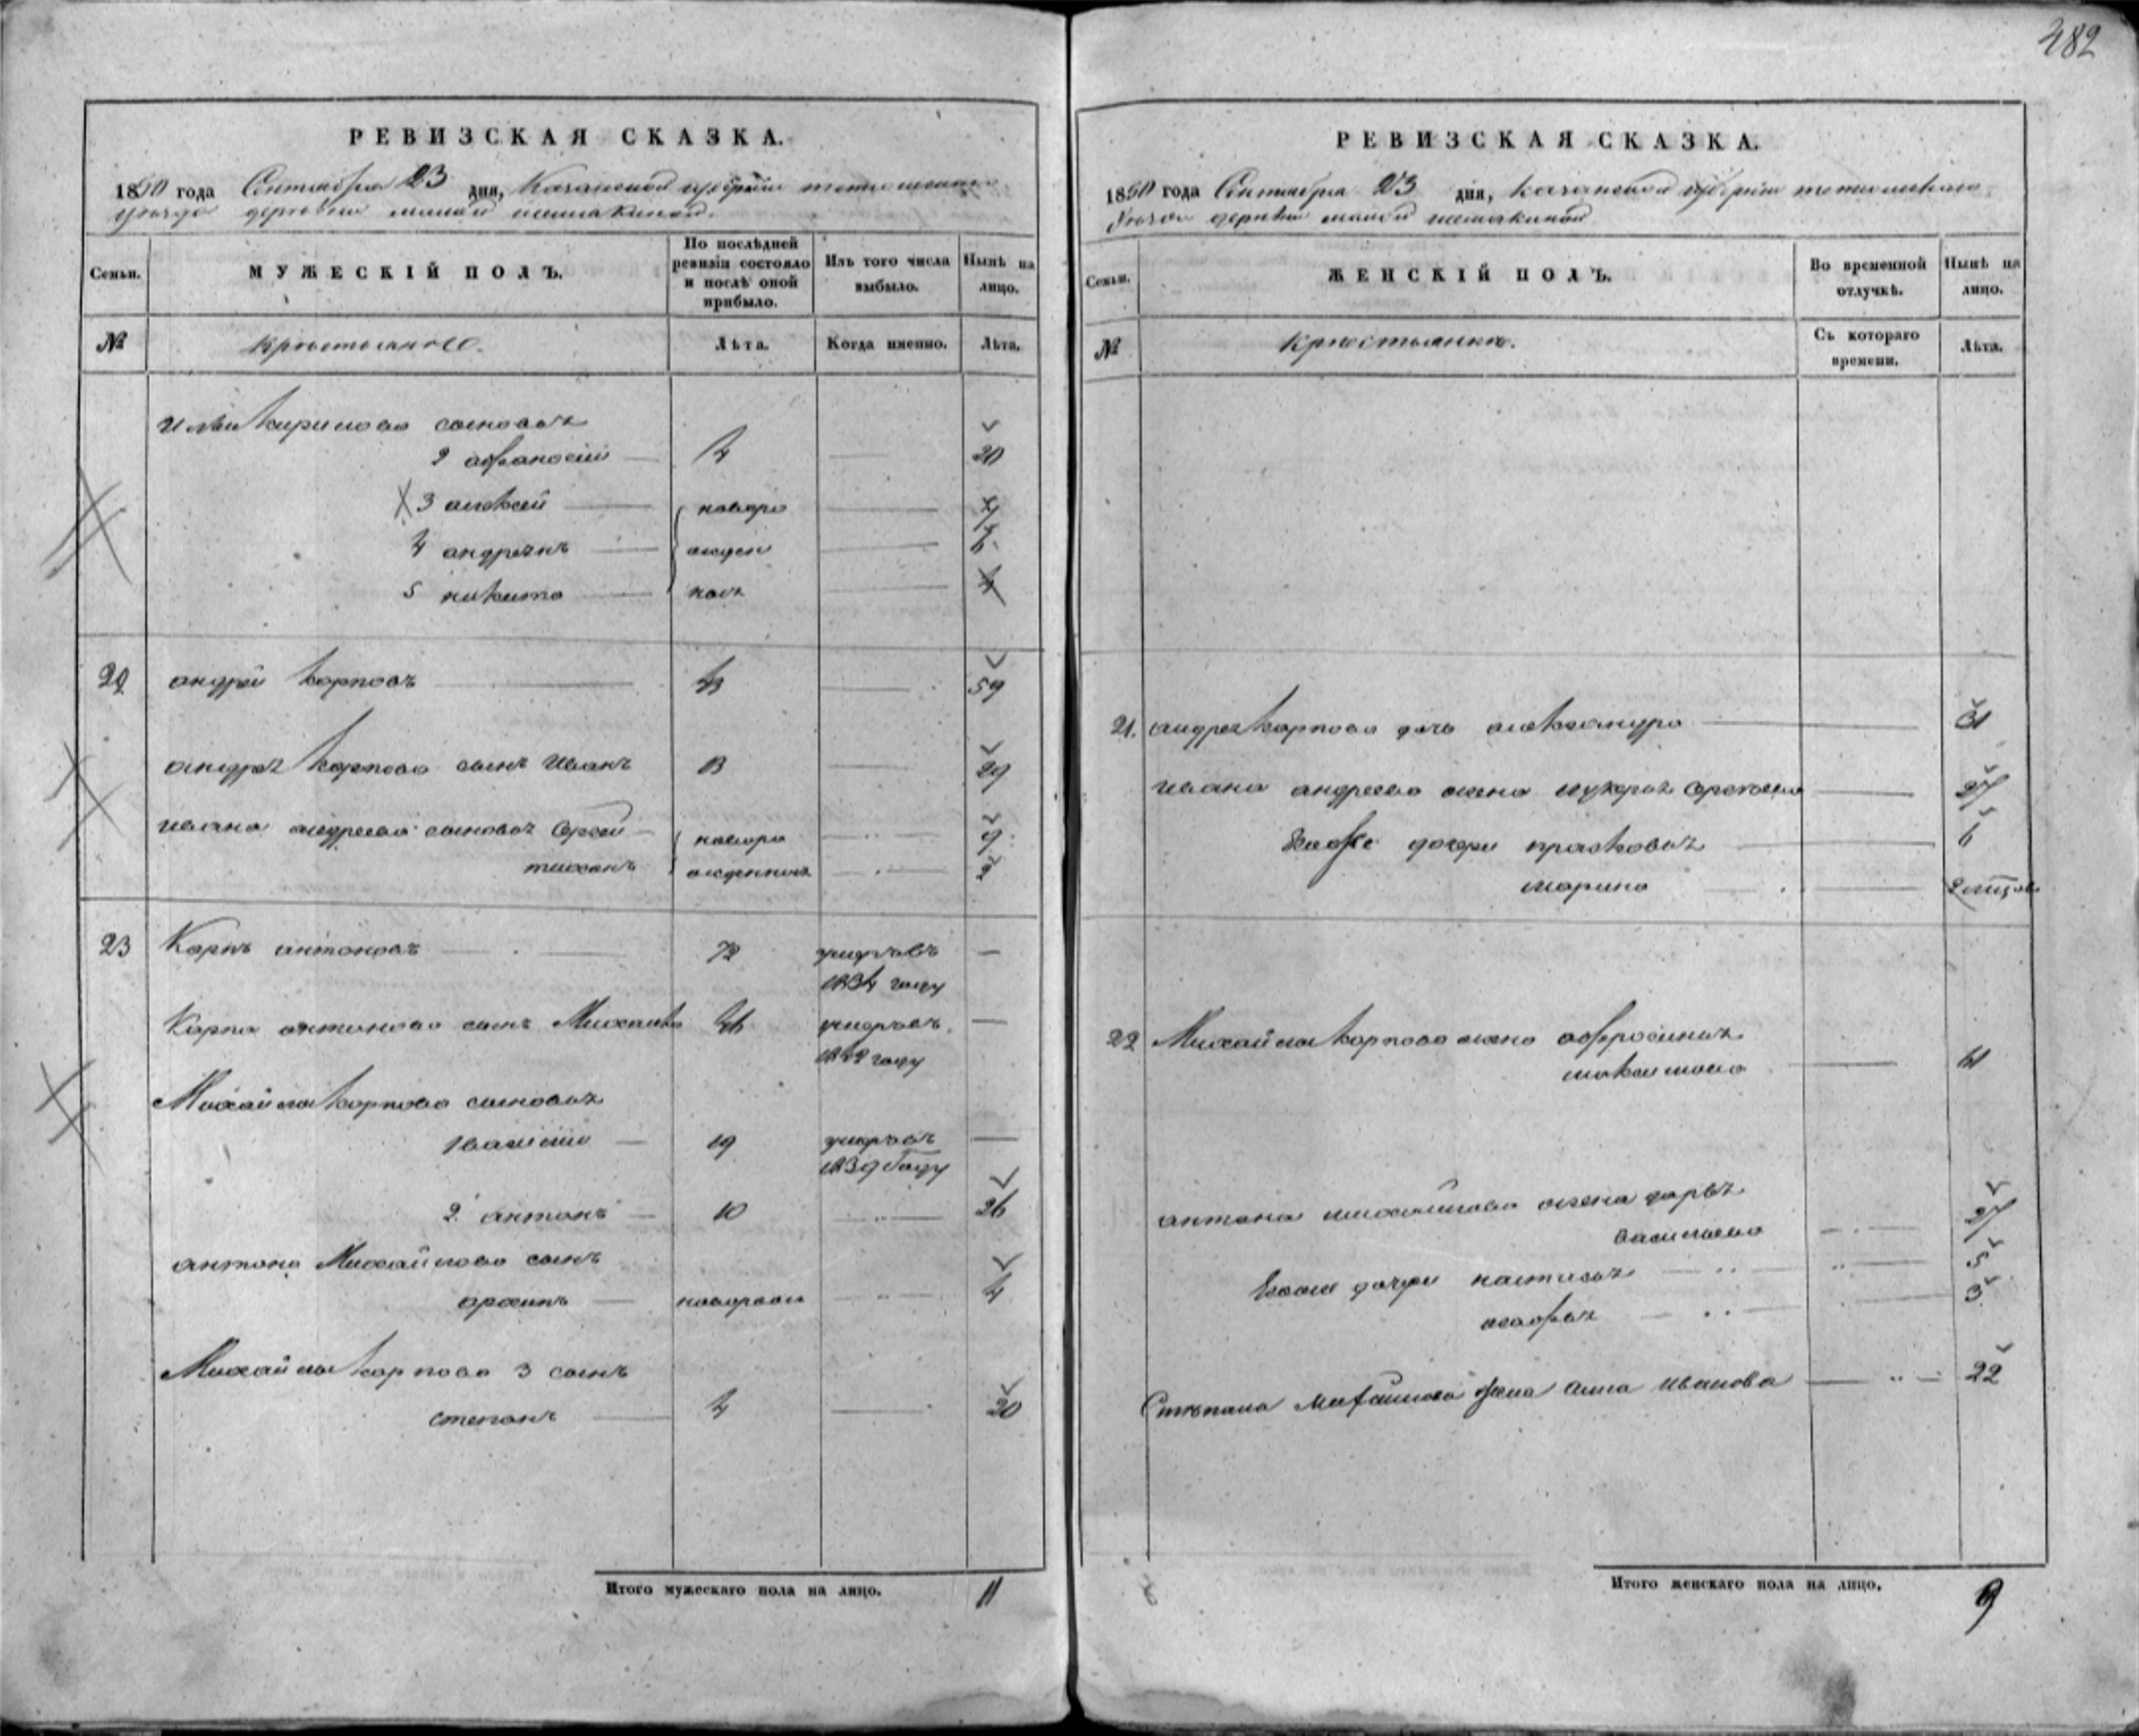 482
РЕВИЗСКАЯ СКАЗКА.
1850 года Сентября 23 дня, Казанской губернии тетюшскаго
уезда деревни малой шемякиной.
Семьи.
МУЖЕСКІЙ ПОЛЪ.
По послѣдней ревизіи состояло и послѣ оной прибыло.
Изъ того числа выбыло.
Нынѣ на лицо.
№
крестьяне
Лѣта.
Когда именно.
Лѣта.
ильи кирилова сыновья
2 афанасий 4 20
3 алексей новоро
4 андреянъ жден 6
5 никита ные
22 андрей карповъ 43 59
андрея карпова сынъ иванъ 13 29
ивана андреева сыновья сергей новоро 9
тихонъ жденныя 2
23 Карпъ антоновъ 72 умръ въ —
1834 году
Карпа антонова сынъ Михайла 46 умръ въ —
1842 году
Михайлы карпова сыновья
1 василий 19 умръ въ —
1839 году
2 антонъ 10 26
антона Михайлова сынъ
архипъ новорож 4
Михайлы карпова 3 сынъ
степанъ 4 20
Итого мужескаго пола на лицо. 11
РЕВИЗСКАЯ СКАЗКА.
1850 года Сентября 23 дня, казанской губернии тетюшскаго
уезда деревни малой шемякиной
Семьи.
ЖЕНСКІЙ ПОЛЪ.
Во временной отлучкѣ.
Нынѣ на лицо.
№
крестьянки.
Съ котораго времени.
Лѣта.
21. андрея карпова дочь александра 31
ивана андреева жена лукерья 27
дочери прасковья 6
марина 2 мцов
22 Михайлы карпова жена афросинья
максимова 61
антона михайлова жена дарья
васильева 27
Ево же дочери настасья 5
3
Степана Михаилова жена анна иванова 22
Итого женскаго пола на лицо. 9